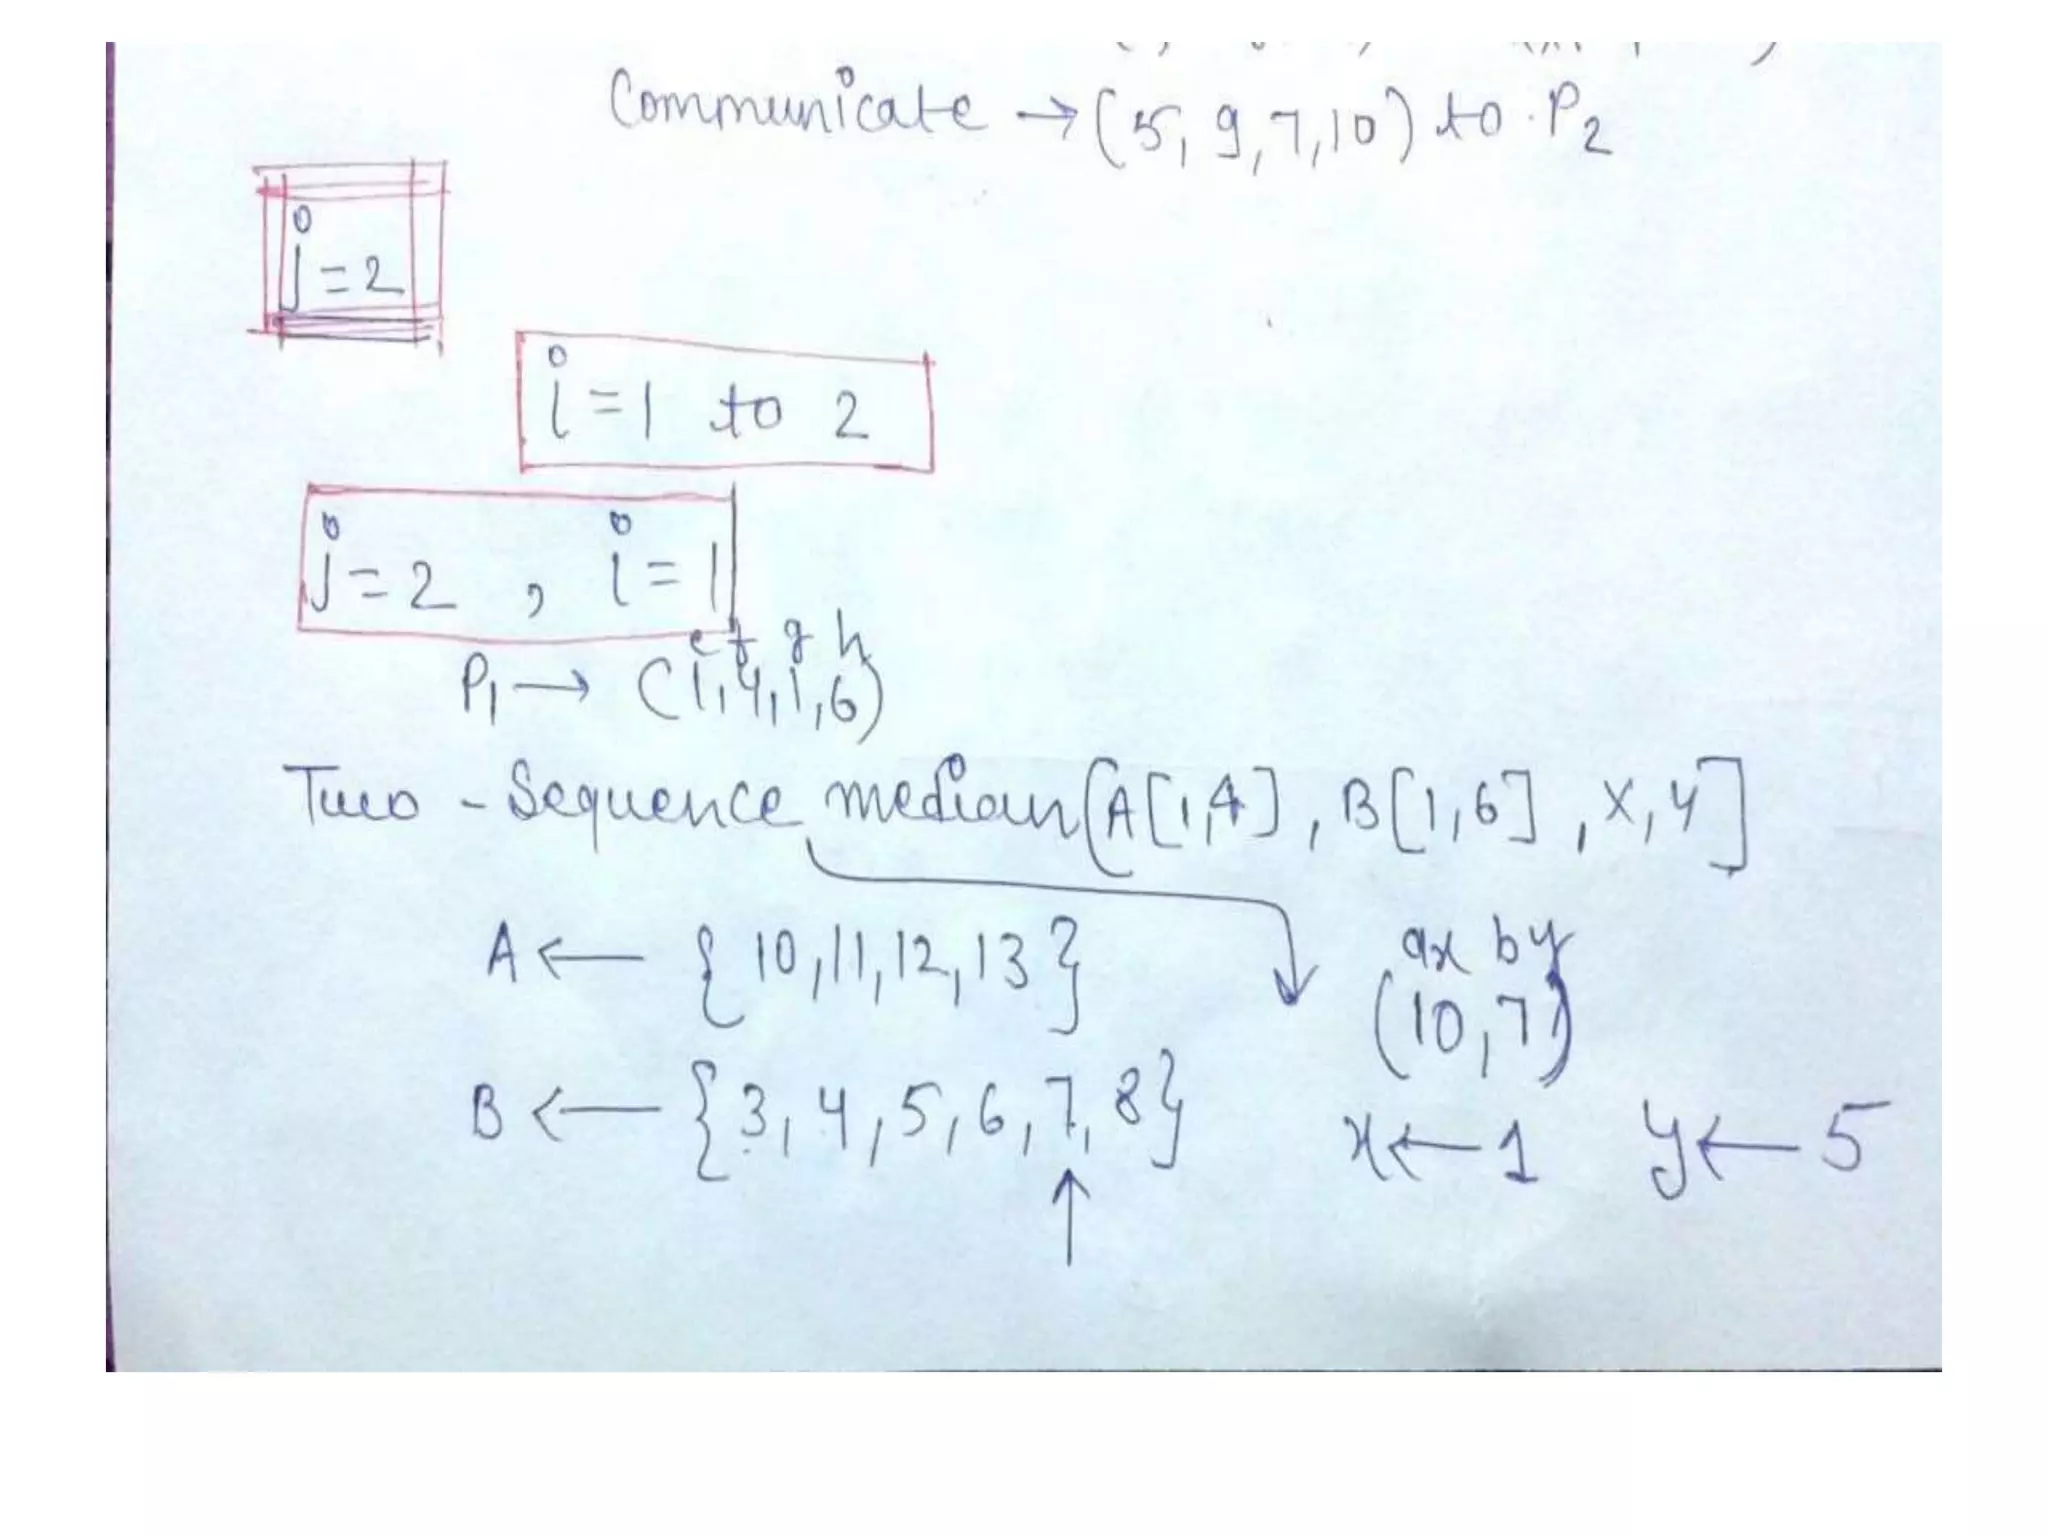 Communicate → (5, 9, 7, 10) to P2
j = 2
i = 1 to 2
j = 2 , i = 1
e f g h
P1 → (1, 4, 1, 6)
Two - Sequence median (A[1,4], B[1,6], x, y]
A ← {10, 11, 12, 13}
ax by
(10, 7)
B ← {3, 4, 5, 6, 7, 8}
x ← 1 y ← 5
↑